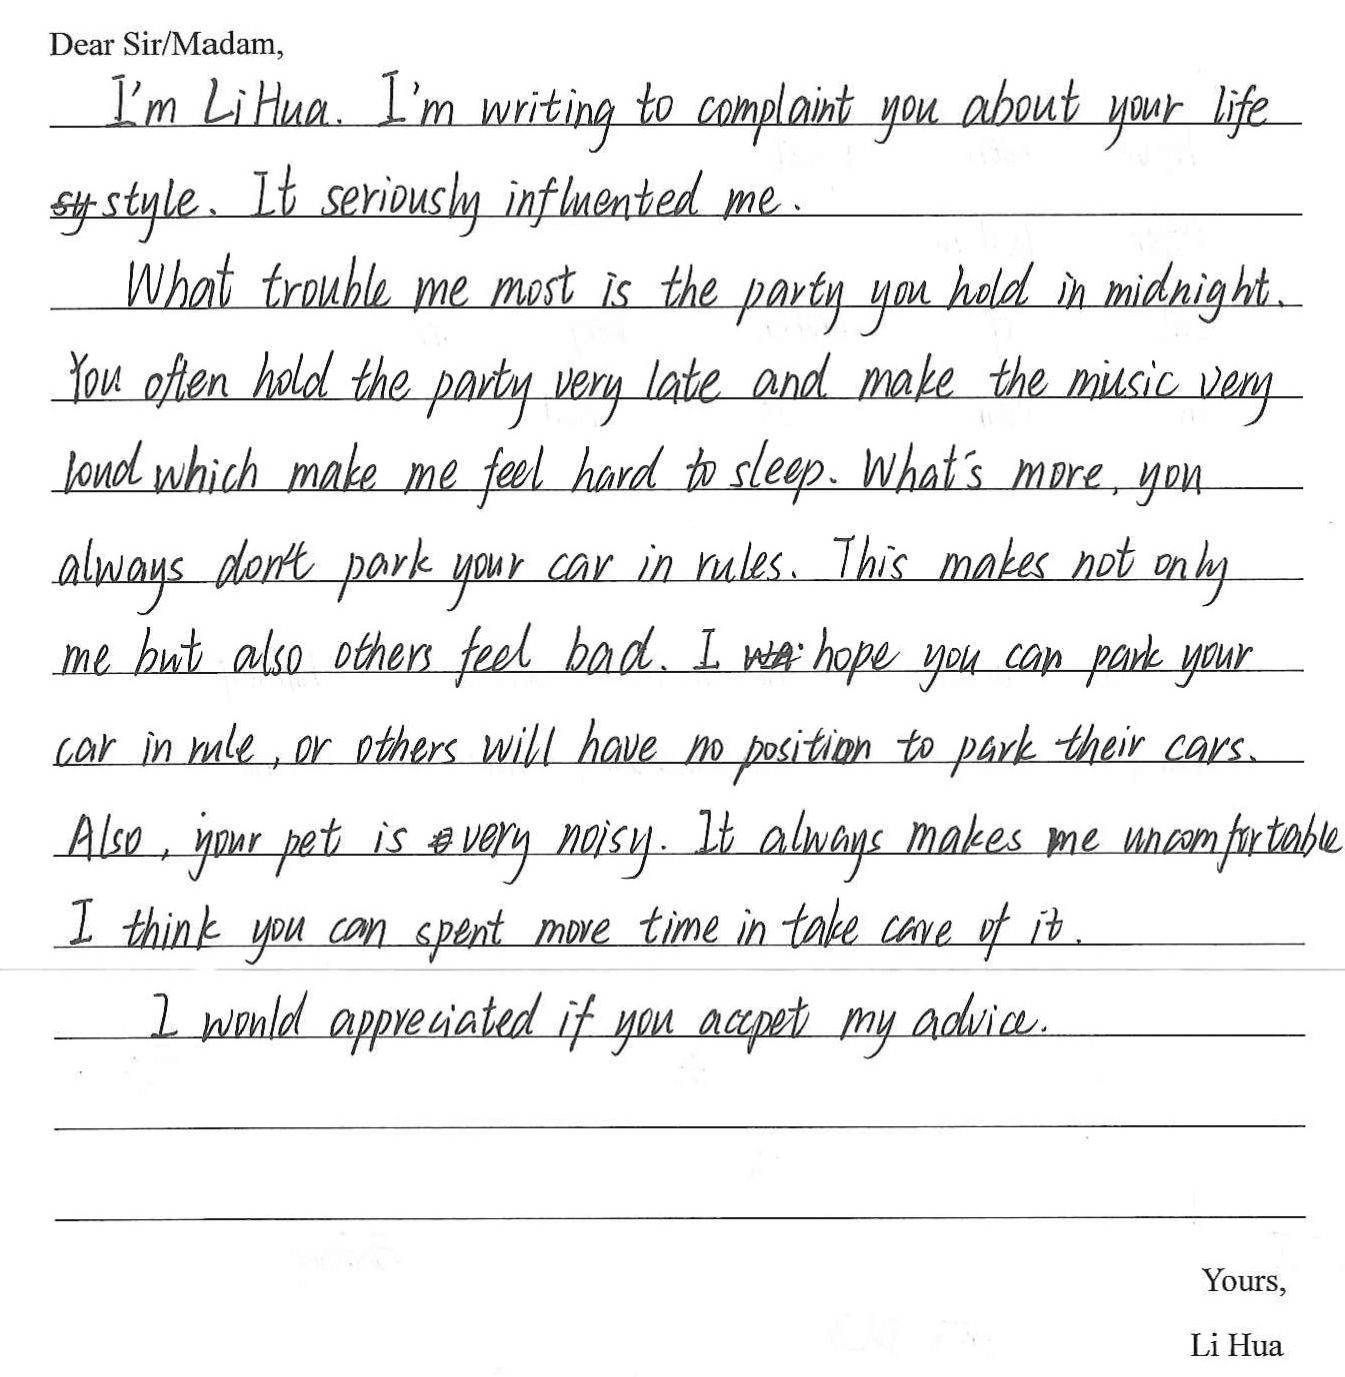 Dear Sir/Madam,
I'm Li Hua. I'm writing to complaint you about your life
style. It seriously influented me.
What trouble me most is the party you hold in midnight.
You often hold the party very late and make the music very
loud which make me feel hard to sleep. What's more, you
always don't park your car in rules. This makes not only
me but also others feel bad. I hope you can park your
car in rule, or others will have no position to park their cars.
Also, your pet is very noisy. It always makes me uncomfortable
I think you can spent more time in take care of it.
I would appreciated if you accpet my advice.
Yours,
Li Hua